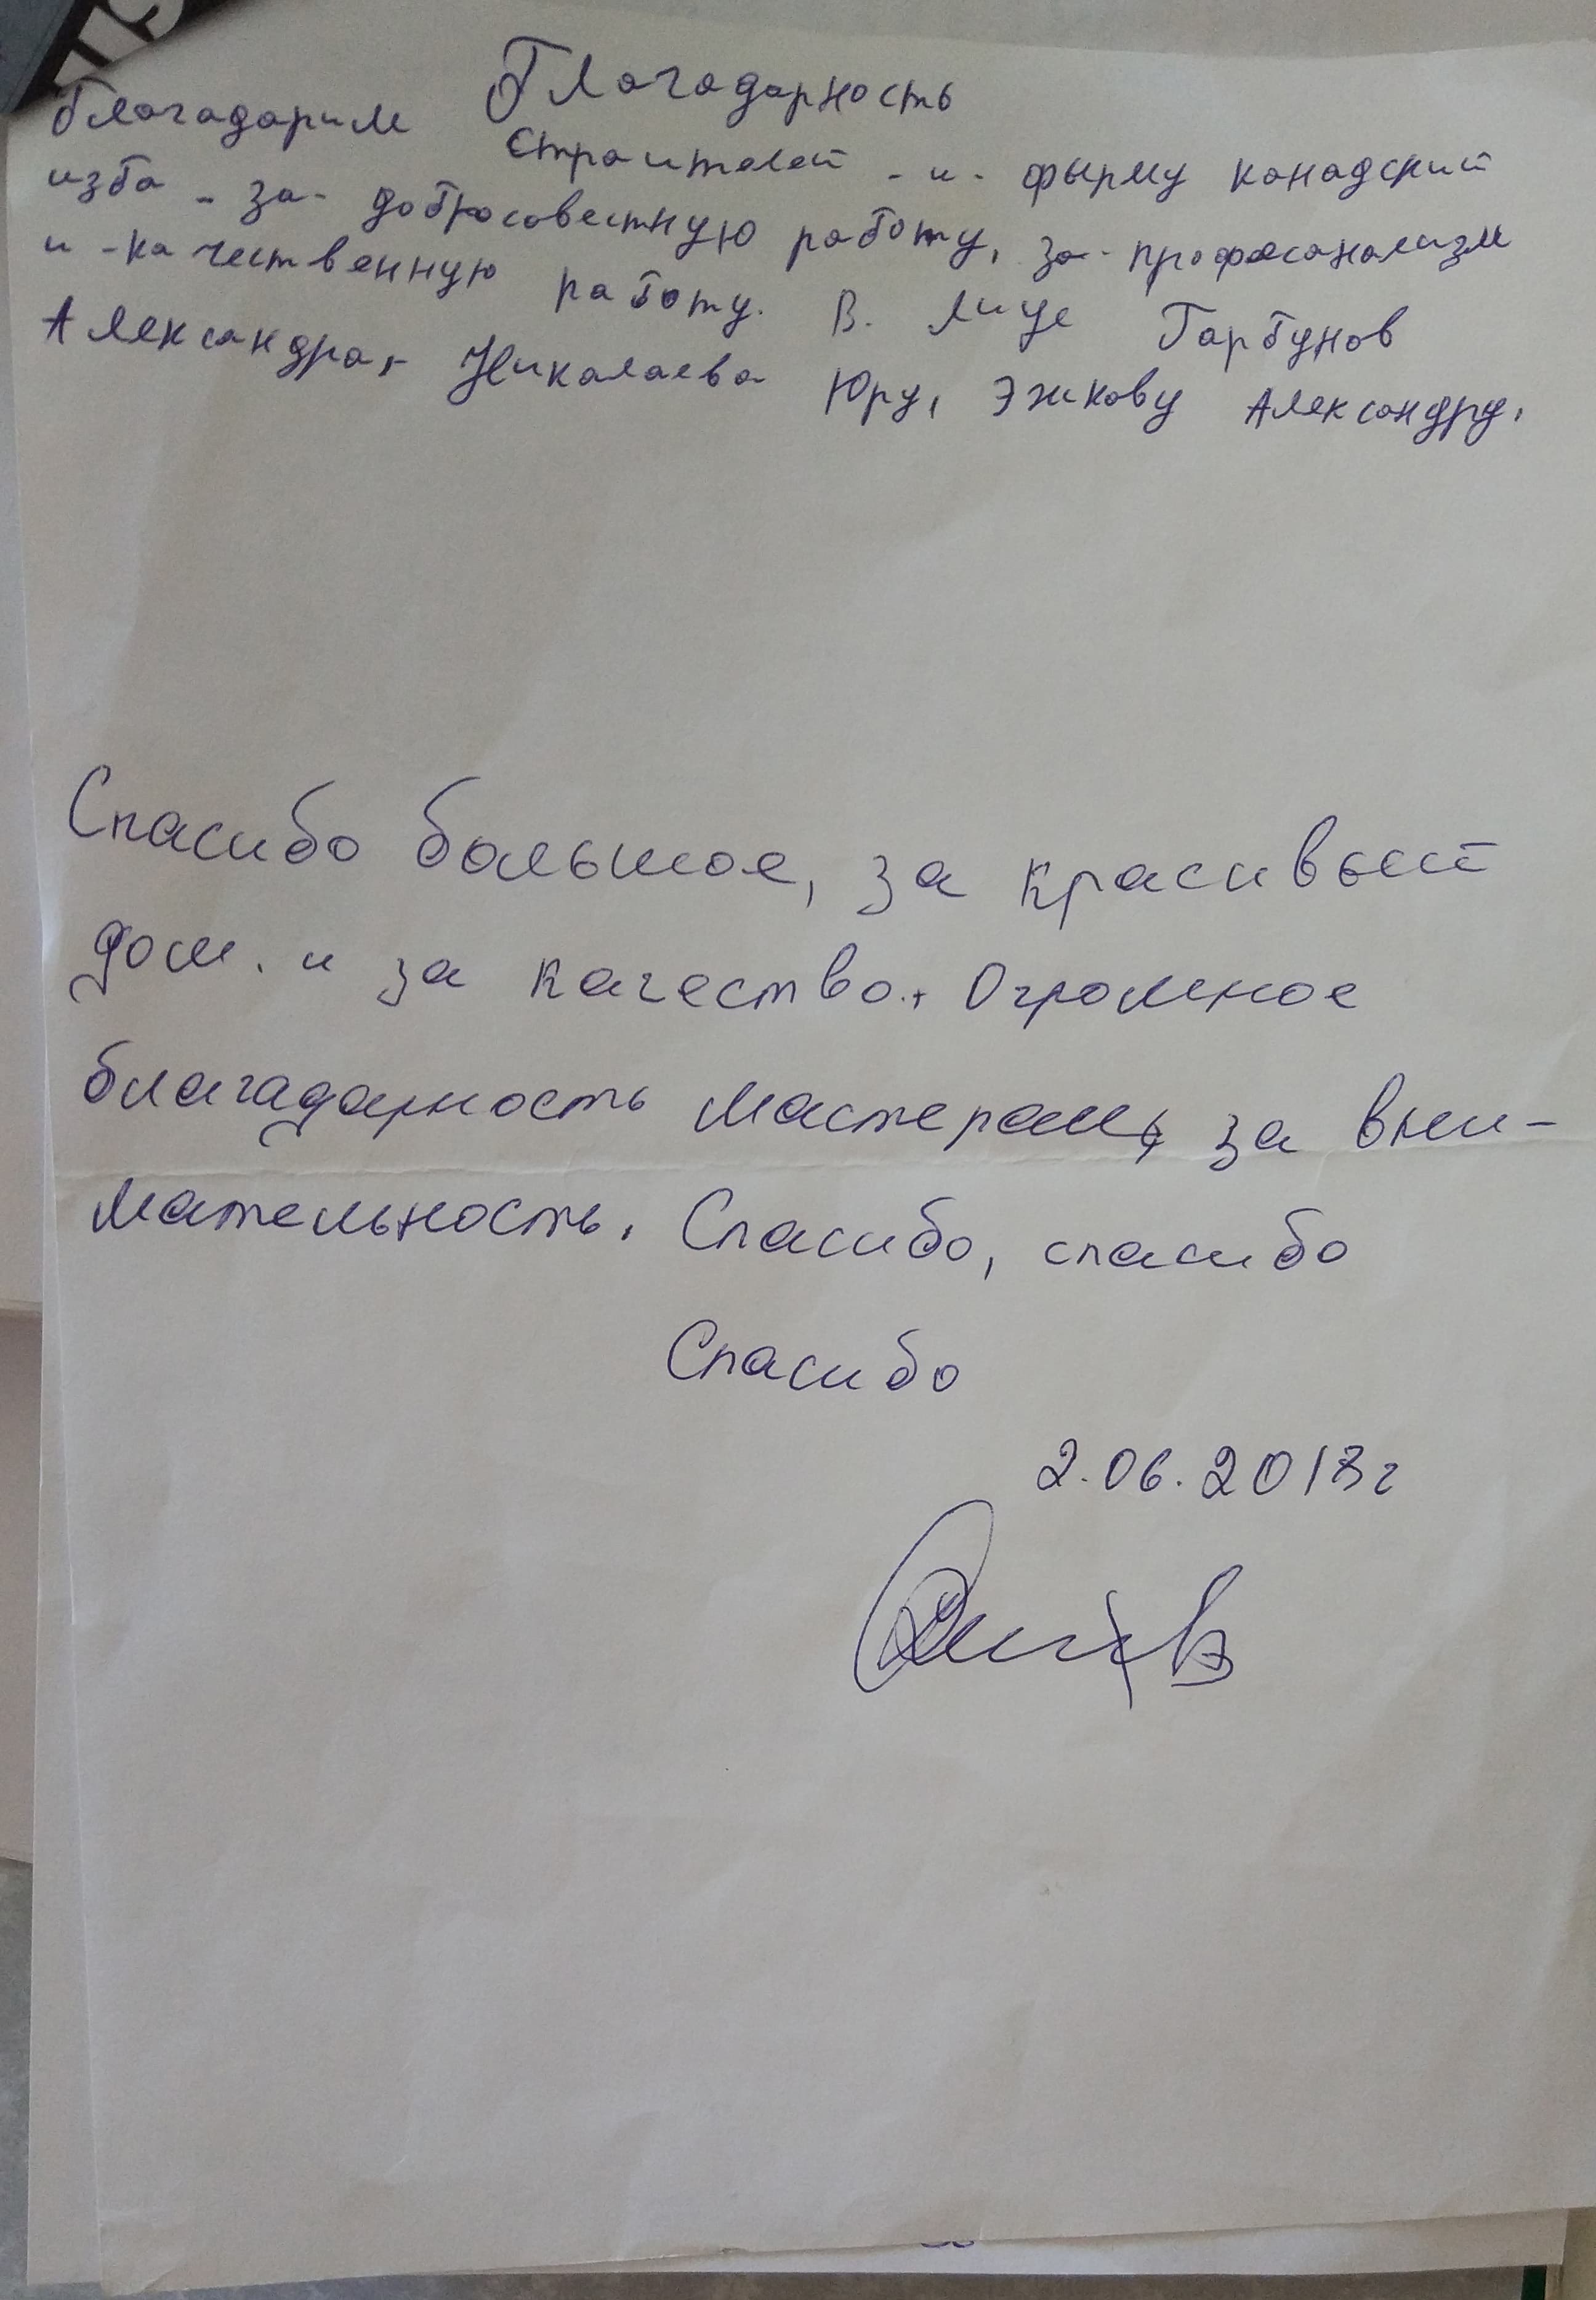 Благодарность
благадарим строителей - и - фырму канадский
изба - за - добросовестную работу, за - професанализм
и - качественную работу. В. лице Гарбунов
Александра, - Никалаева Юру, Эжкову Александру,
Спасибо большое, за красивый
дом. и за качество. Огромное
благадарность мастерам, за вни-
мательность. Спасибо, спасибо
Спасибо
2.06.2018г